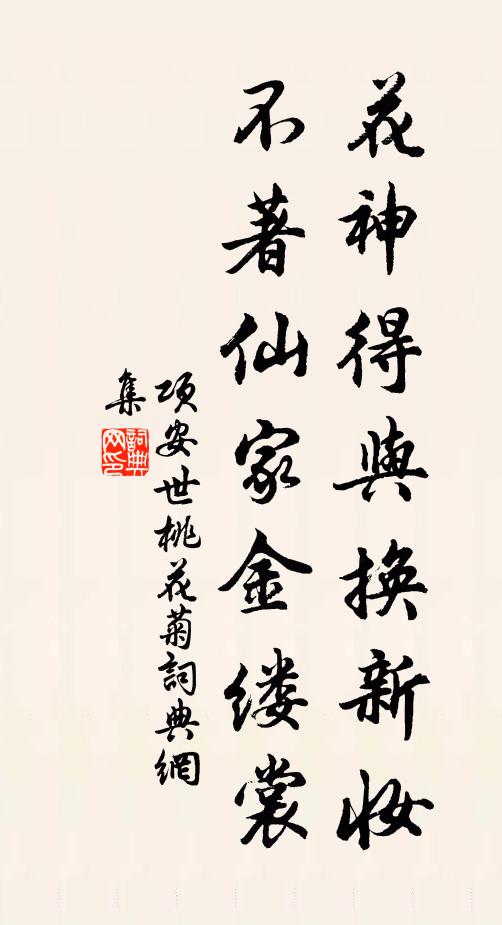 花神得與换新妝
不著仙家金缕裳
項安世桃花菊詞典網
集
詞典網印